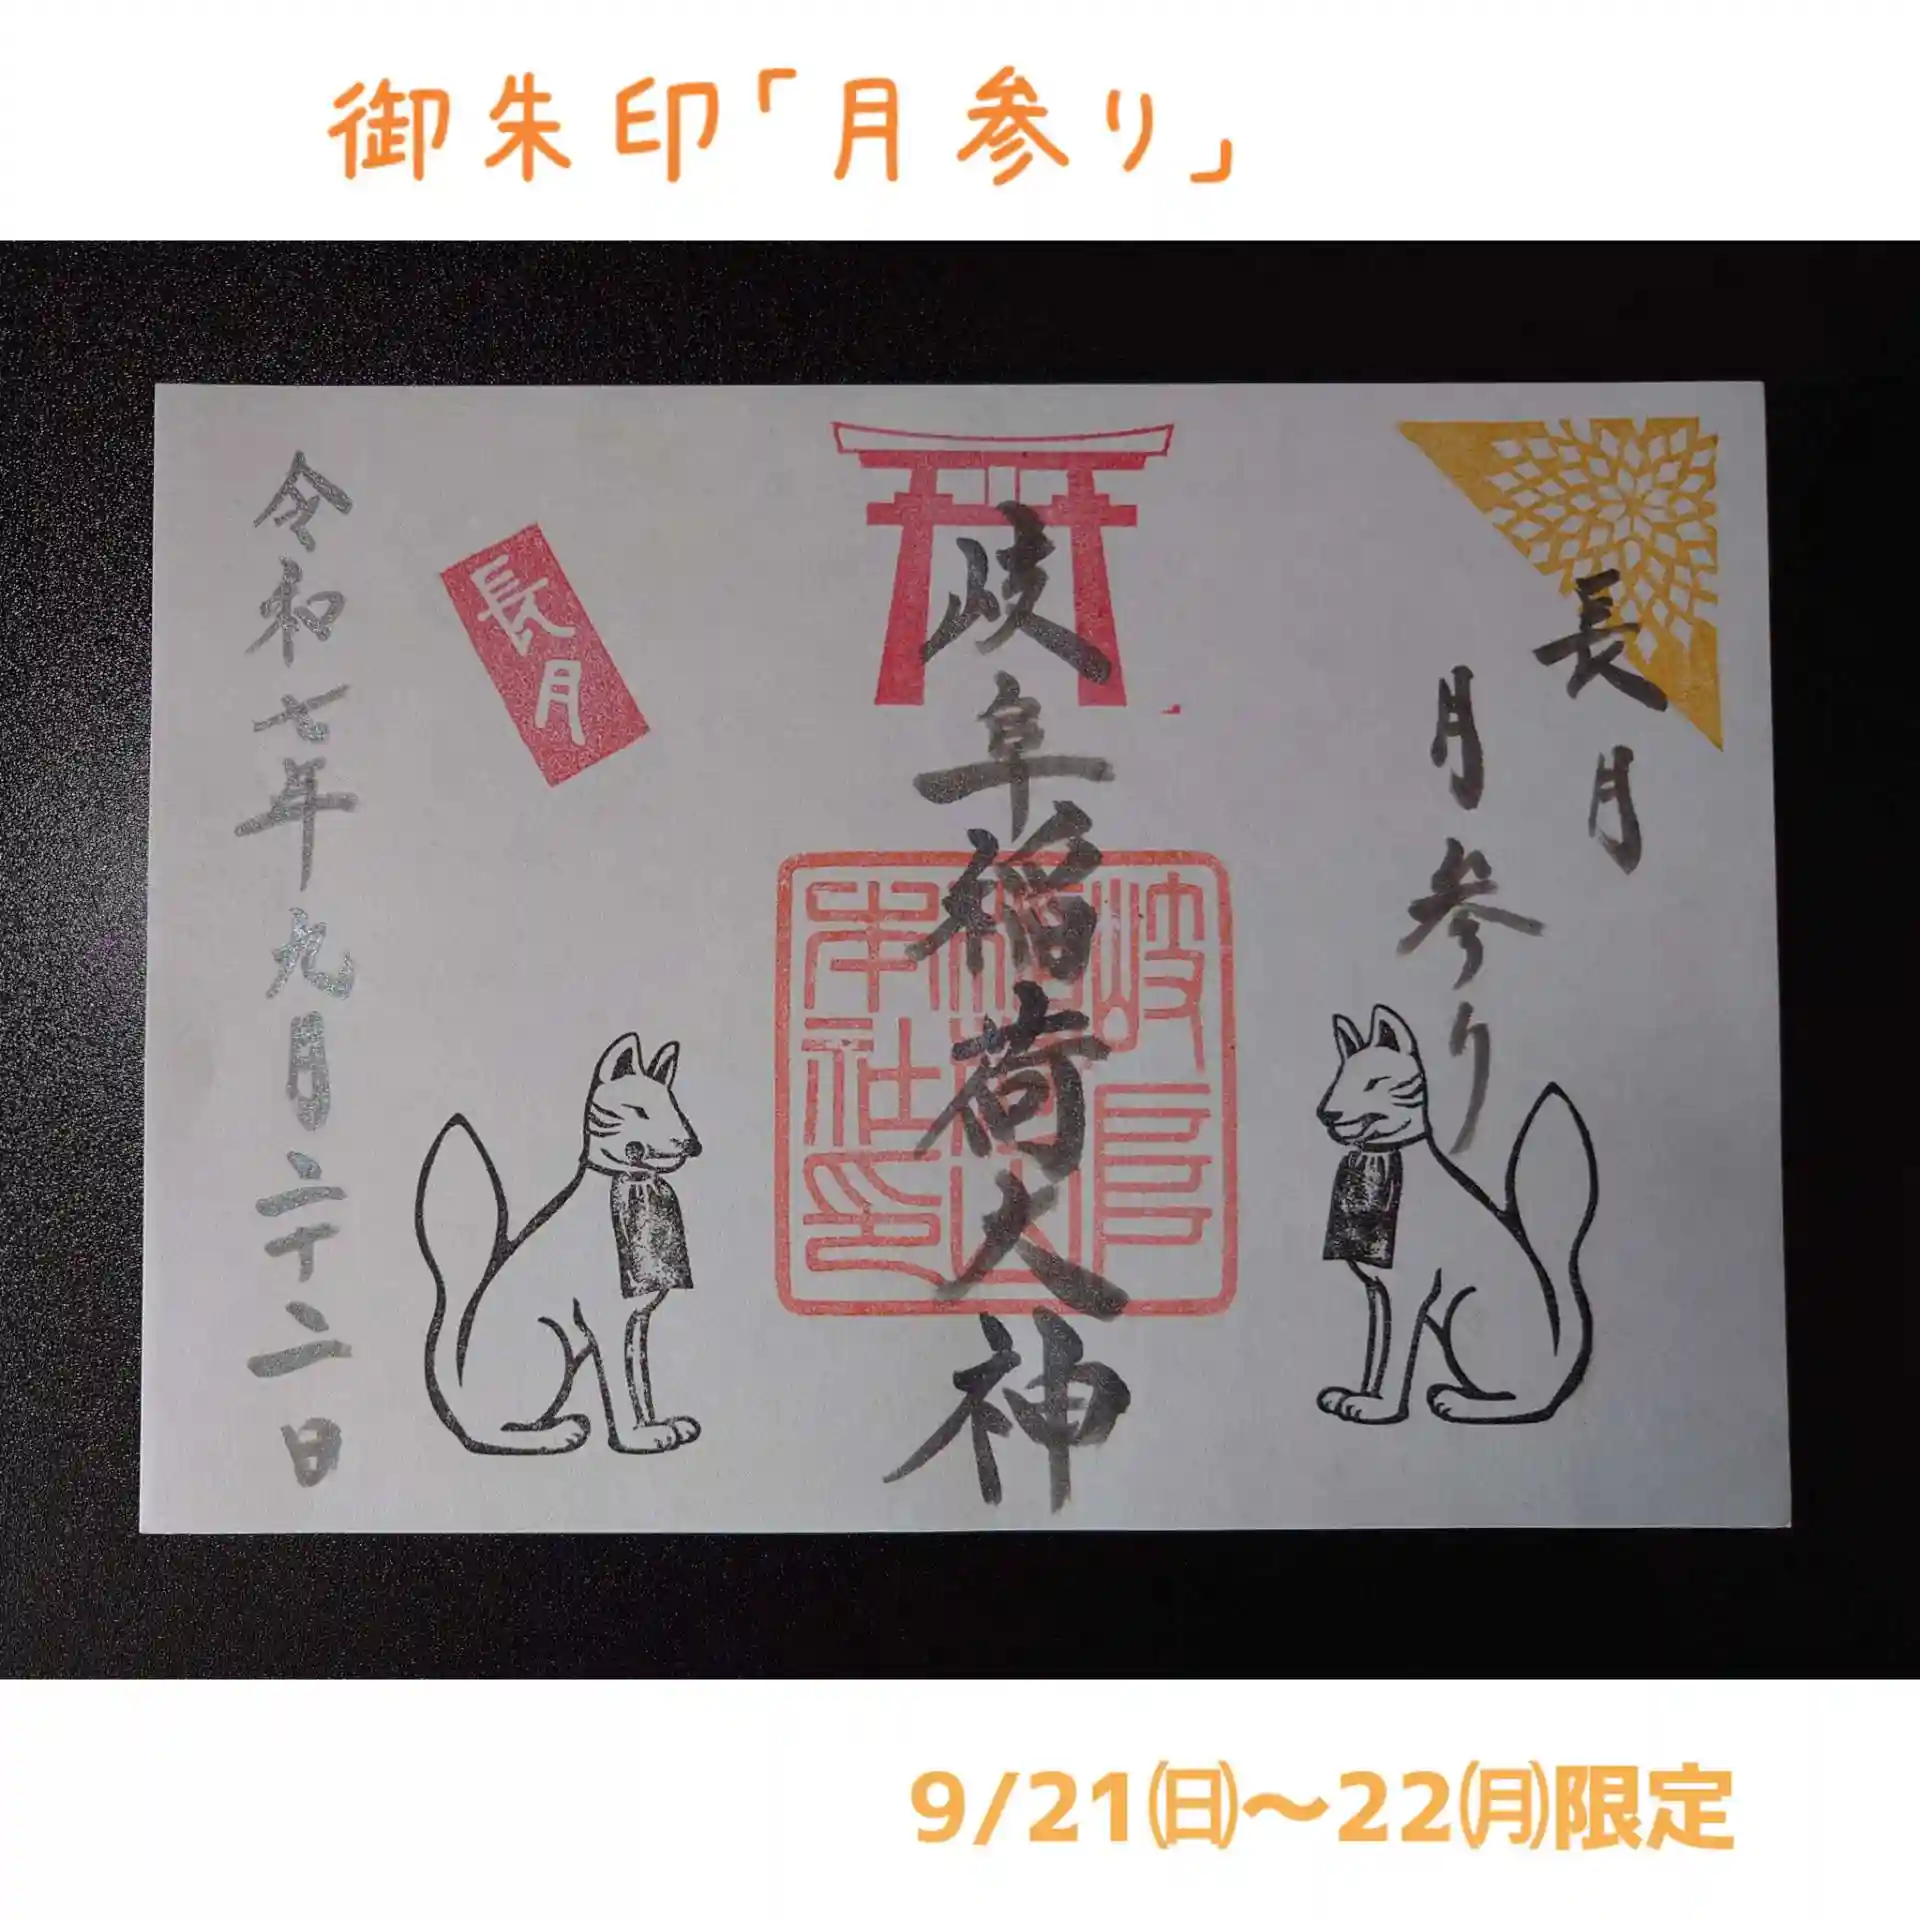 御朱印「月参り」
長月
月参り
岐阜稲荷大神
岐阜稲荷山本社印
長月
令和七年九月二十二日
9/21㈰～22㈪限定